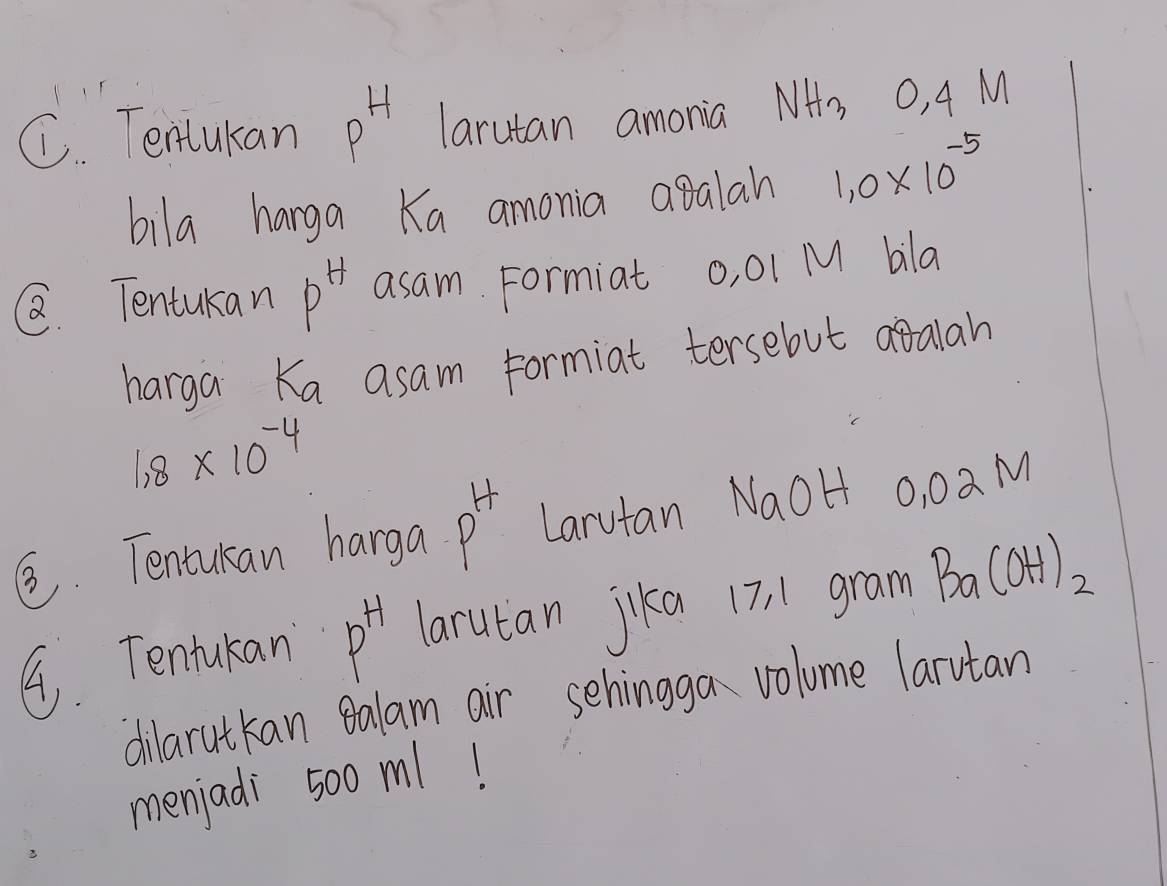 1. Tentukan pH larutan amonia NH3 0,4 M
bila harga Ka amonia adalah 1,0 × 10^-5
2. Tentukan pH asam Formiat 0,01 M bila
harga Ka asam Formiat tersebut adalah
1,8 × 10^-4
3. Tentukan harga pH Larutan NaOH 0,02 M
4. Tentukan pH larutan jika 17,1 gram Ba(OH)2
dilarutkan dalam air sehingga volume larutan
menjadi 500 ml !